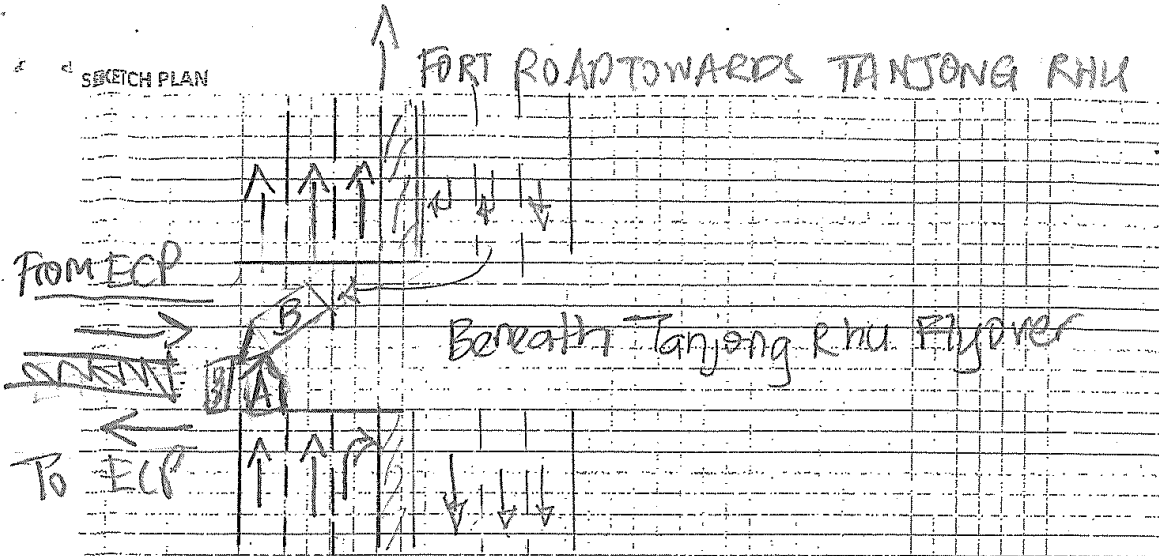 SKETCH PLAN
FORT ROAD TOWARDS TANJONG RHU
From ECP
B
Beneath Tanjong Rhu Flyover
A
To ECP